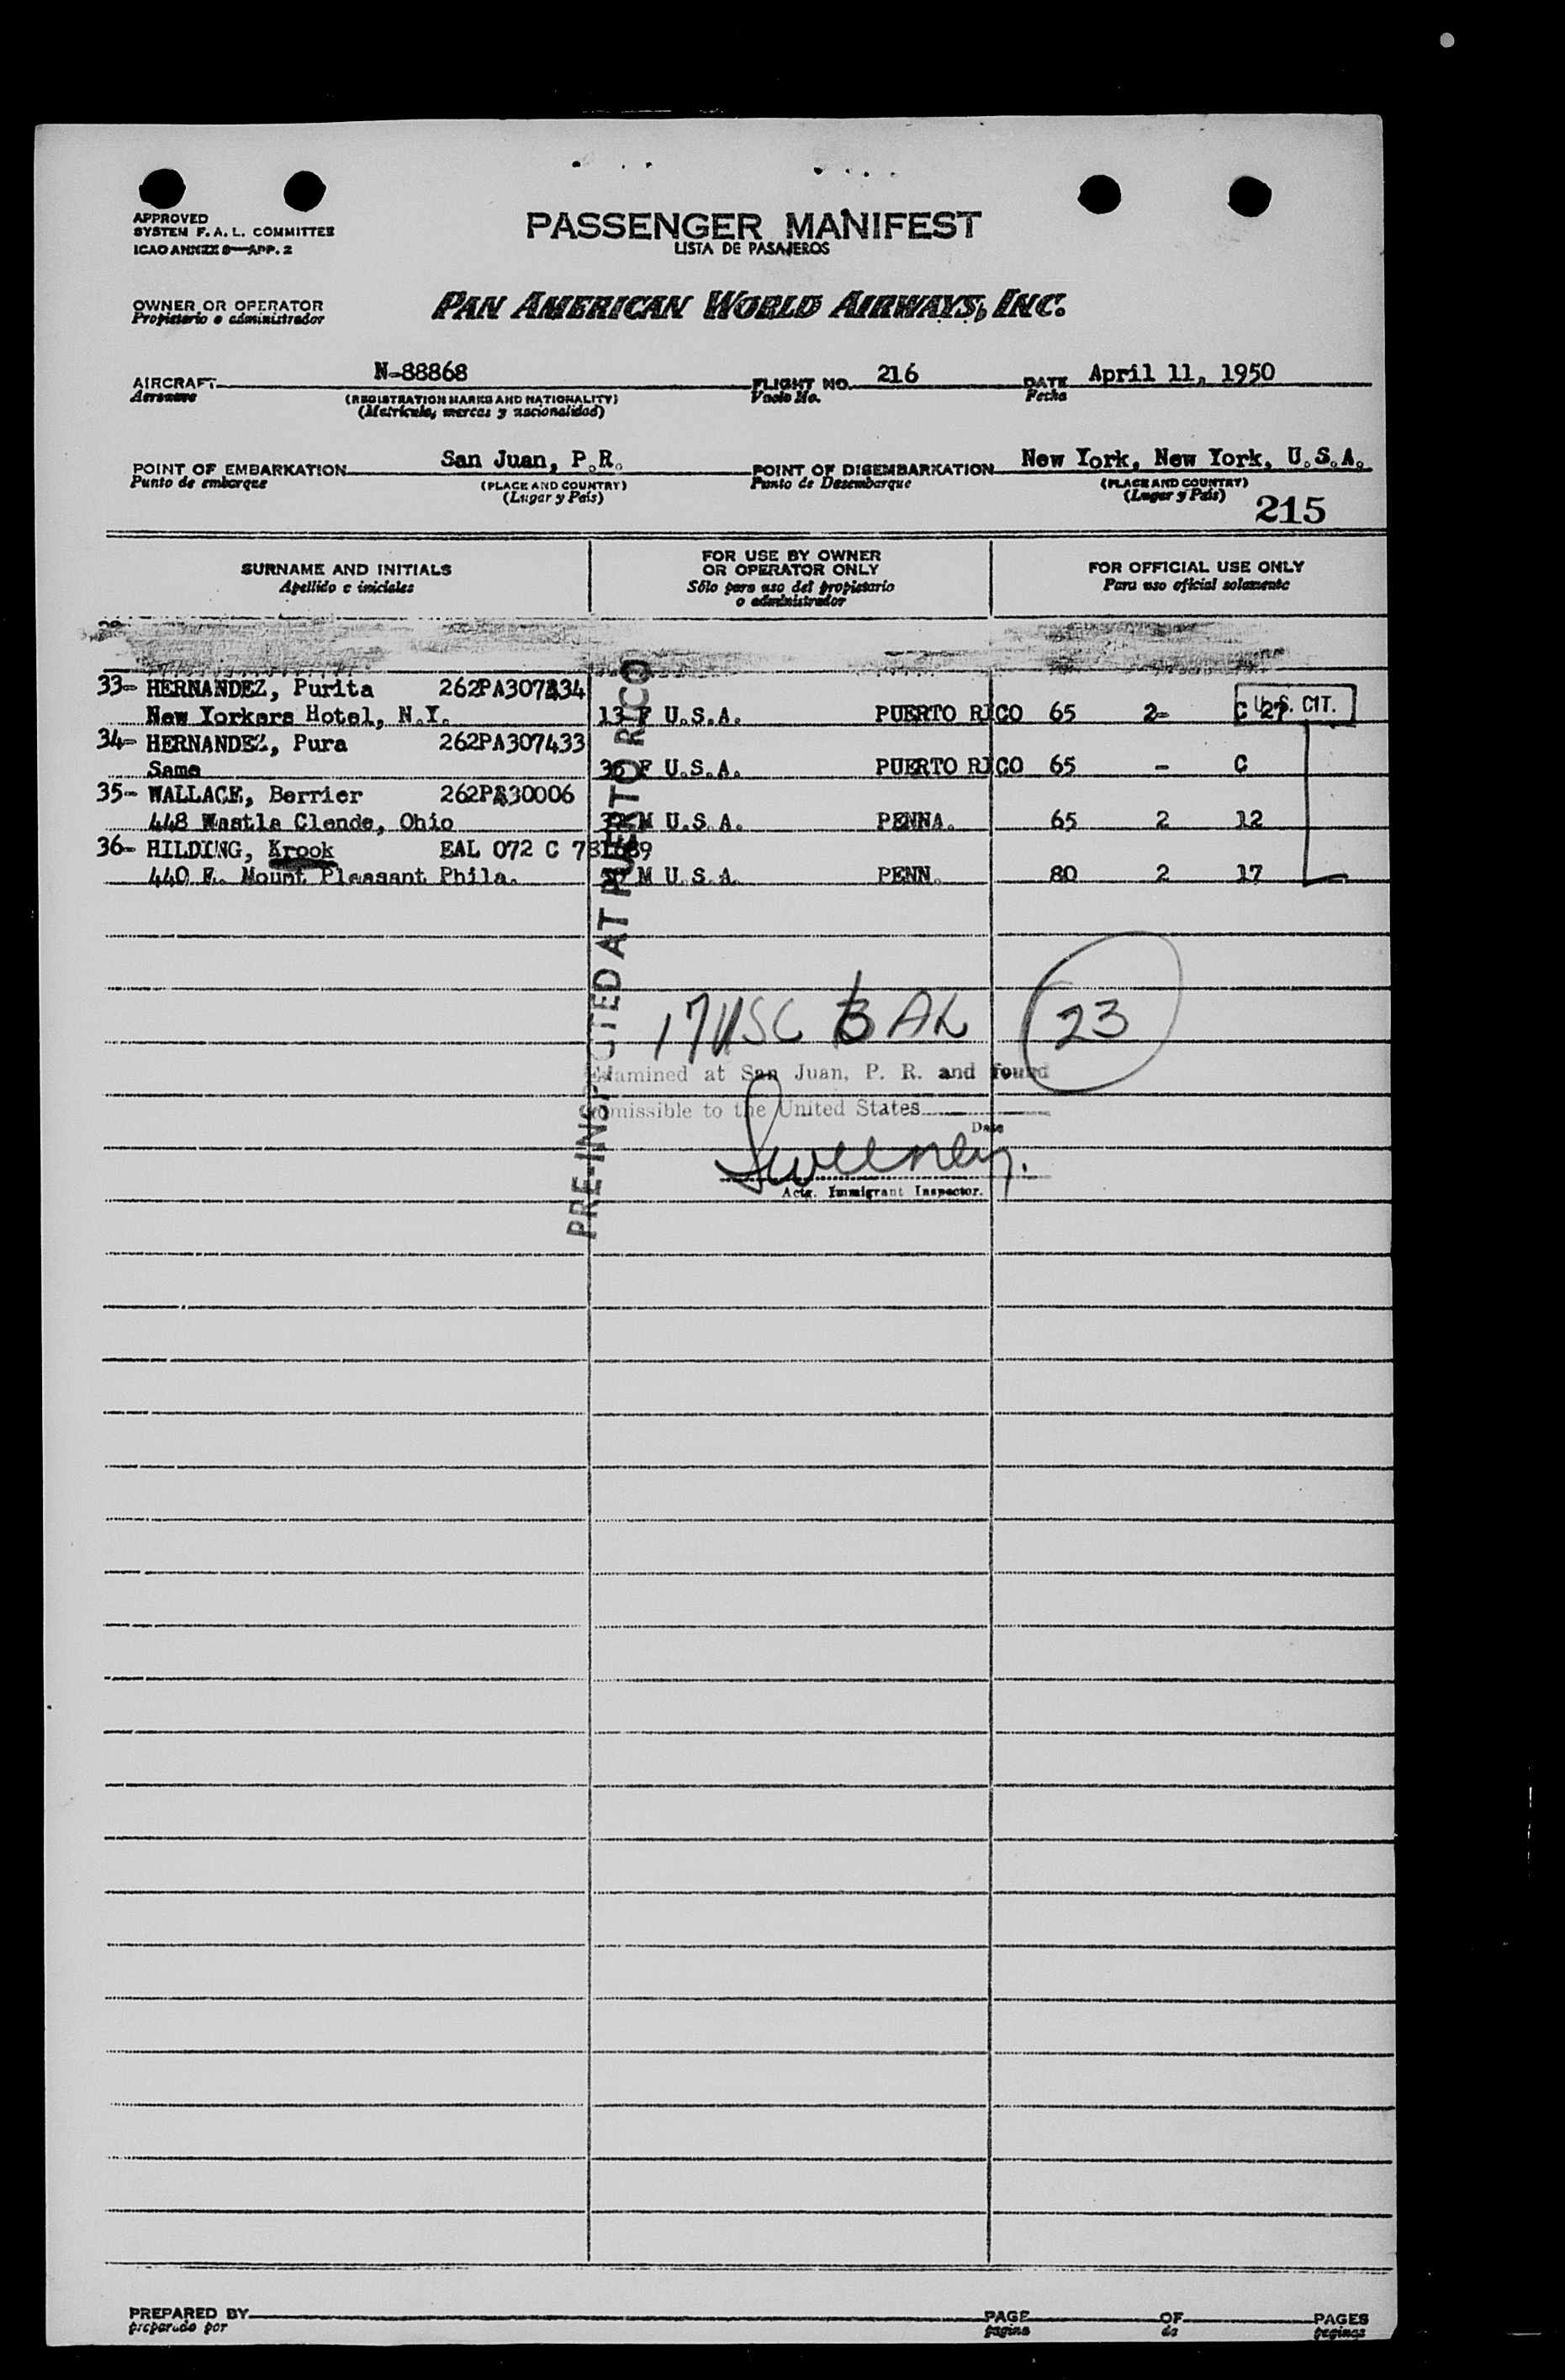 APPROVED
SYSTEM F. A. L. COMMITTEE
ICAO ANNEX 9—APP. 2
PASSENGER MANIFEST
LISTA DE PASAJEROS
OWNER OR OPERATOR
Propietario o administrador
PAN AMERICAN WORLD AIRWAYS, INC.
AIRCRAFT N-88868 FLIGHT NO. 216 DATE April 11, 1950
Aeronave (REGISTRATION MARKS AND NATIONALITY) Vuelo No. Fecha
(Matrícula, marcas y nacionalidad)
POINT OF EMBARKATION San Juan, P.R. POINT OF DISEMBARKATION New York, New York, U.S.A.
Punto de embarque (PLACE AND COUNTRY) Punto de Desembarque (PLACE AND COUNTRY)
(Lugar y País) (Lugar y País)
215
SURNAME AND INITIALS
Apellido e iniciales
FOR USE BY OWNER
OR OPERATOR ONLY
Sólo para uso del propietario
o administrador
FOR OFFICIAL USE ONLY
Para uso oficial solamente
33- HERNANDEZ, Purita
New Yorkers Hotel, N.Y. 13 F U.S.A. PUERTO RICO 65 2- C 27
U. S. CIT.
34- HERNANDEZ, Pura 262PA307433
Same F U.S.A. PUERTO RICO 65 - C
35- WALLACE, Berrier
448 Wastla Clende, Ohio M U.S.A. PENNA. 65 2 12
36- HILDING, Krook EAL 072 C
440 E. Mount Pleasant Phila. M U.S.A. PENN. 80 2 17
PRE-INSPECTED AT PUERTO RICO
17 USC 6 AL 23
Examined at San Juan, P. R. and found
admissible to the United States
Date
Sweeney.
Actg. Immigrant Inspector.
PREPARED BY PAGE OF PAGES
preparado por página de páginas